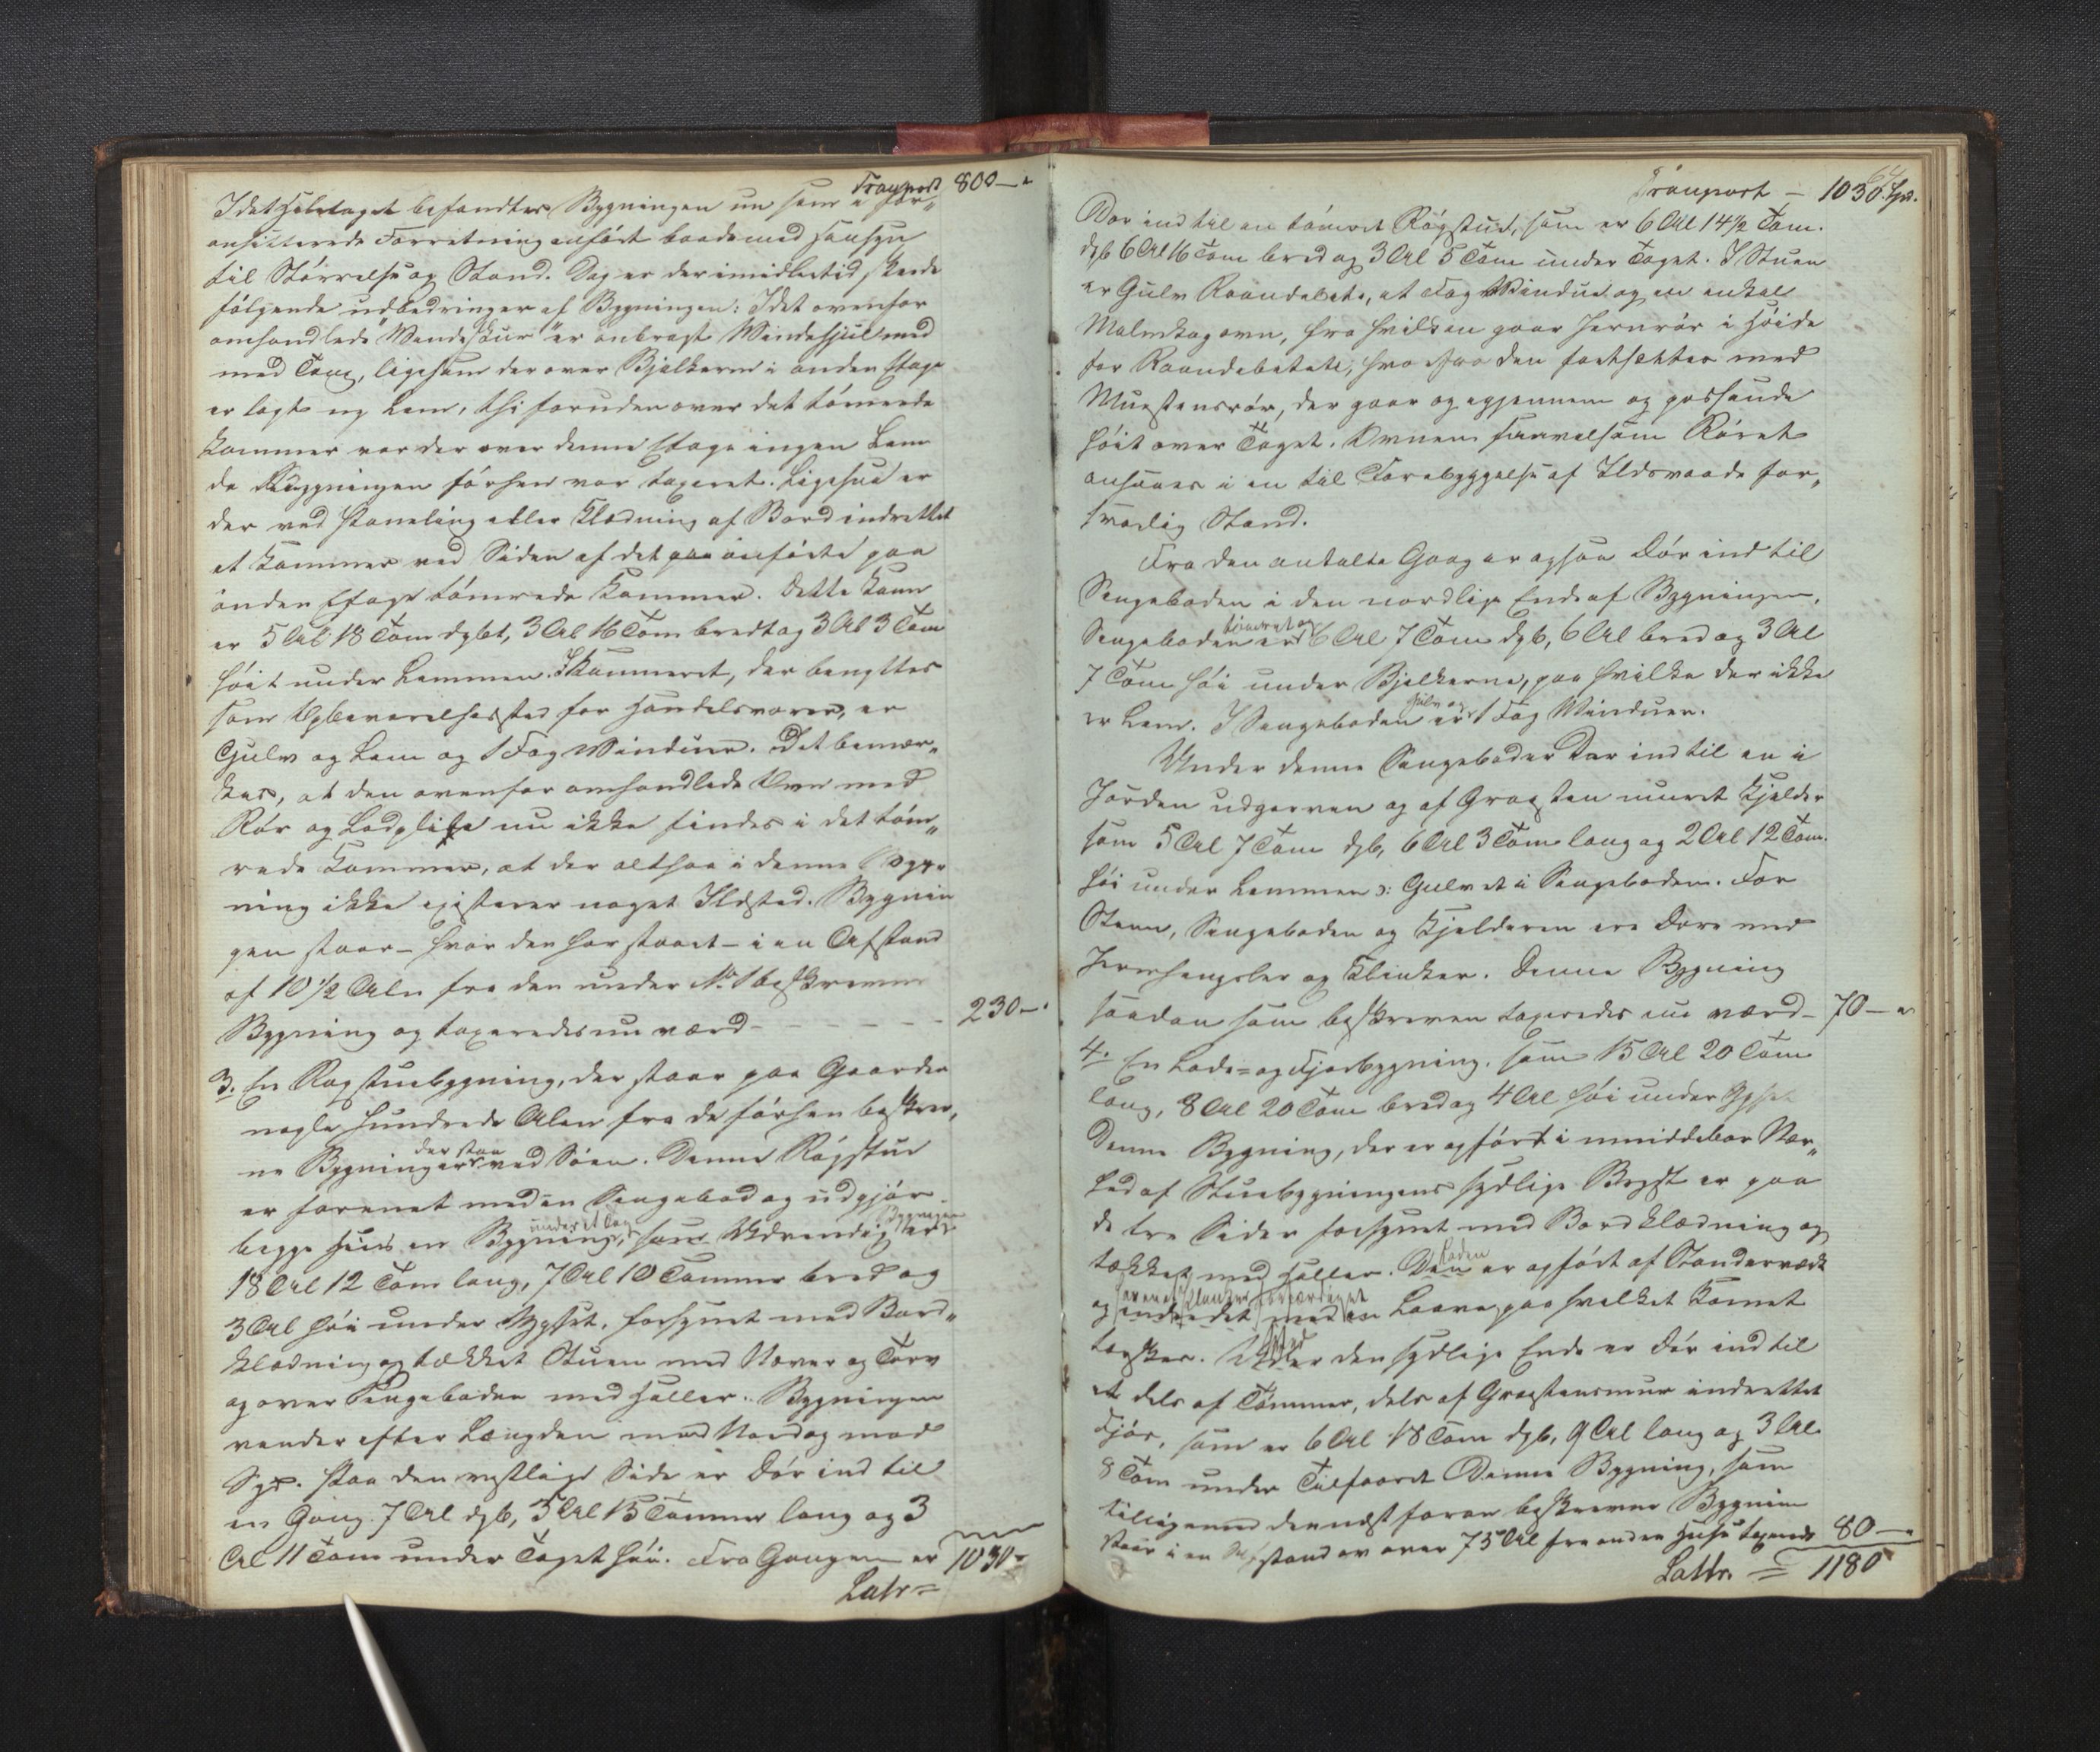 Transport 800 –
I det Heletaget befandtes Bygningen nu som i før-
ansitterede Forretning anført baade med Hensyn
til Størrelse og Stand. Dog er der imidlertid skeede
følgende udbedringer af Bygningen: I det ovenfor
omhandlede "Vindeskuur" er anbragt Vindehjul med
med Toug, ligesom der over Bjelkerne i anden Etage
er lagt ny Lem, thi foruden over det tømrede
Kammer var der over denne Etage ingen Lem
da Bygningen førhen var taxeret. Ligesaa er
der ved Paneling eller Klædning af Bord indrettet
et Kammer ved Siden af det anførte paa
anden Etage tømrede Kammer. Dette Kam
er 5 Al 18 Tom dybt, 3 Al 16 Tom bredt og 3 Al 3 Tom
høit under Lemmen. I Kammeret, der benyttes
som Opbevarelsessted for Handelsvarer, er
Gulv og Lem og 1 Fag Vinduer. Det bemær-
kes, at den ovenfor omhandlede Ovn med
Rør og Brandplade nu ikke findes i det tøm-
rede Kammer, at der altsaa i denne Byg-
ning ikke existerer noget Ildsted. Bygnin
gen staar – hvor den har staaet – i en Afstand
af 10 1/2 Alen fra den under No 1 beskrevne
Bygning og taxeredes nu værd – – – – – 230 –
3. En Røgstuebygning, der staar paa Gaarden
nogle hundrede Alen fra de førhen beskrev-
ne Bygninger der staa ved Søen. Denne Røgstue
er forenet med en Sengebod og udgjør
begge Huus en Bygning, under et Tag som Udvendig Bygningen er
18 Al 12 Tom lang, 7 Al 10 Tommer bred og
3 Al høi under Gesims, forsynet med Bord-
klædning og tækket Stuen med Næver og Torv
og over Sengeboden med Heller. Bygningen
vender efter Længden mod Nord og mod
Syd. Paa den vestlige Side er Dør ind til
en Gang 7 Al dyb, 3 Al 15 Tommer lang og 3
Al 11 Tom under Taget høi. Fra Gangen er 1030 –
Latr =
64
Transport – 1030 Spd.
Dør ind til en tømret Røgstue, som er 6 Al 14 1/2 Tom.
dyb 6 Al 16 Tom bred og 3 Al 5 Tom under Taget. I Stuen
er Gulv Raandebete, et Fag Vindue og en enkel
Malmkagovn, fra hvilken gaar Jernrør i Høide
for Raandebetets, hvorfra den fortsættes med
Muurstensrør, der gaar op igjennem og passende
høit over Taget. Ovnen saavelsom Røret
ansaaes i en til Forebyggelse af Ildsvaade for-
svarlig Stand.
Fra den omtalte Gang er ogsaa Dør ind til
Sengeboden i den nordlige Ende af Bygningen,
Sengeboden er tømret og 6 Al 7 Tom dyb, 6 Al bred og 3 Al
7 Tom høi under Bjelkerne, paa hvilke der ikke
er Lem. I Sengeboden er Gulv og 1 Fag Vinduer.
Under denne Sengebod er Dør ind til en i
Jorden udgraven og af Graasten muret Kjelder
som 5 Al 7 Tom dyb, 6 Al 3 Tom lang og 2 Al 12 Tom.
høi under Lemmen ɔ: Gulvet i Sengeboden. For
Stuen, Sengeboden og Kjelderen ere Døre med
Jernhengsler og Klinker. Denne Bygning
saadan som beskreven taxeredes nu værd – 70 –
4. En Lade- og Fjøsbygning, som 15 Al 20 Tom
lang, 8 Al 20 Tom bred og 4 Al høi under Gesims
Denne Bygning, der er opført i umiddelbar Nær-
hed af Stuebygningens sydlige Bryst er paa
de tre Sider forsynet med Bordklædning og
tækket med Heller. Den Laden er opført af Standerværk
og indredet med en Laave, paa hvilket Kornet
tærskes. Ved den sydlige Ende er Dør ind til
et dels af Tømmer, dels af Graastensmur indrettet
Fjøs, som er 6 Al 18 Tom dyb, 9 Al lang og 3 Al.
8 Tom under Tilfaaret Denne Bygning, som
tilligemed den næst foran beskrevne Bygnin
staar i en Afstand av over 75 Al fra andre Huse taxeredes 80 –
Lattr. = 1180